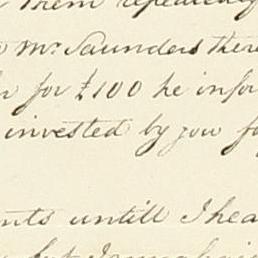 them repeatedly
Mr. Saunders there
for £100 he infor
invested by you fo
nts untill I hea